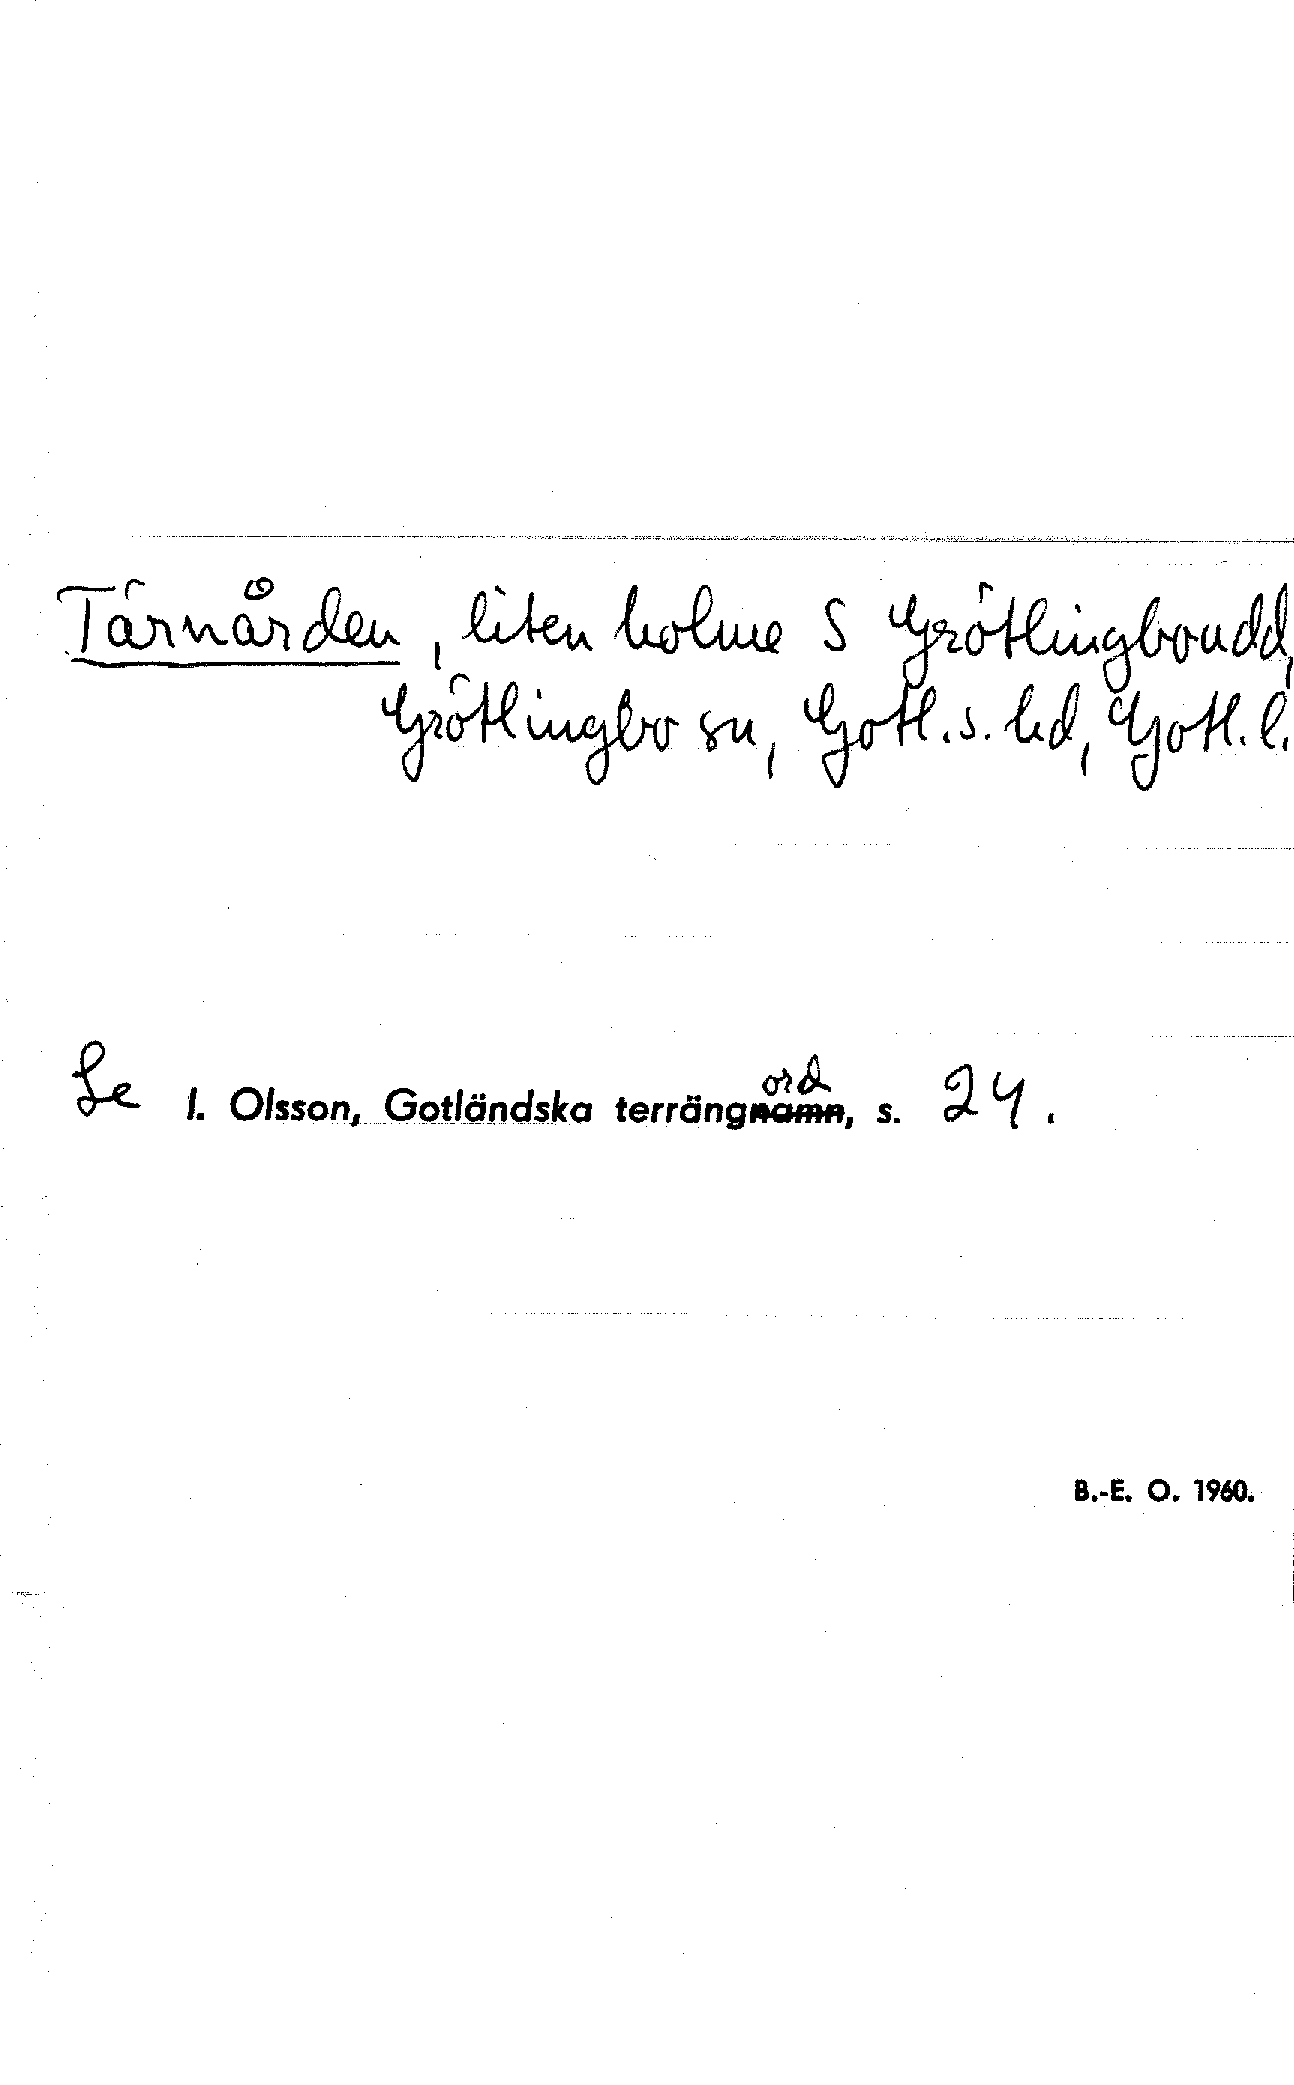 Tärnården, liten holme S Grötlingboudd,
Grötlingbo sn, Gotl. s. hd, Gotl. l.
Se I. Olsson, Gotländska terrängnamn, s. 24.
ord
B.-E. O. 1960.